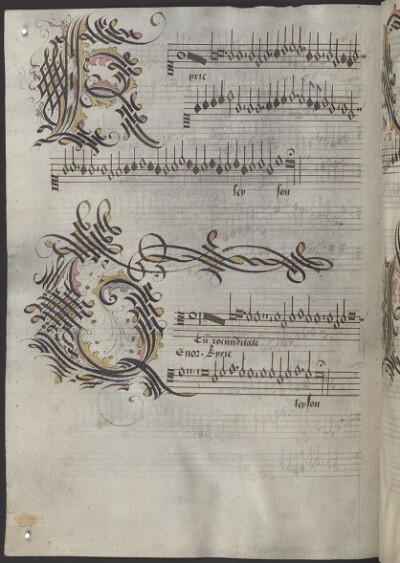 yrie
ley son
Cum iocunditate
Enor. Kyrie
leyson